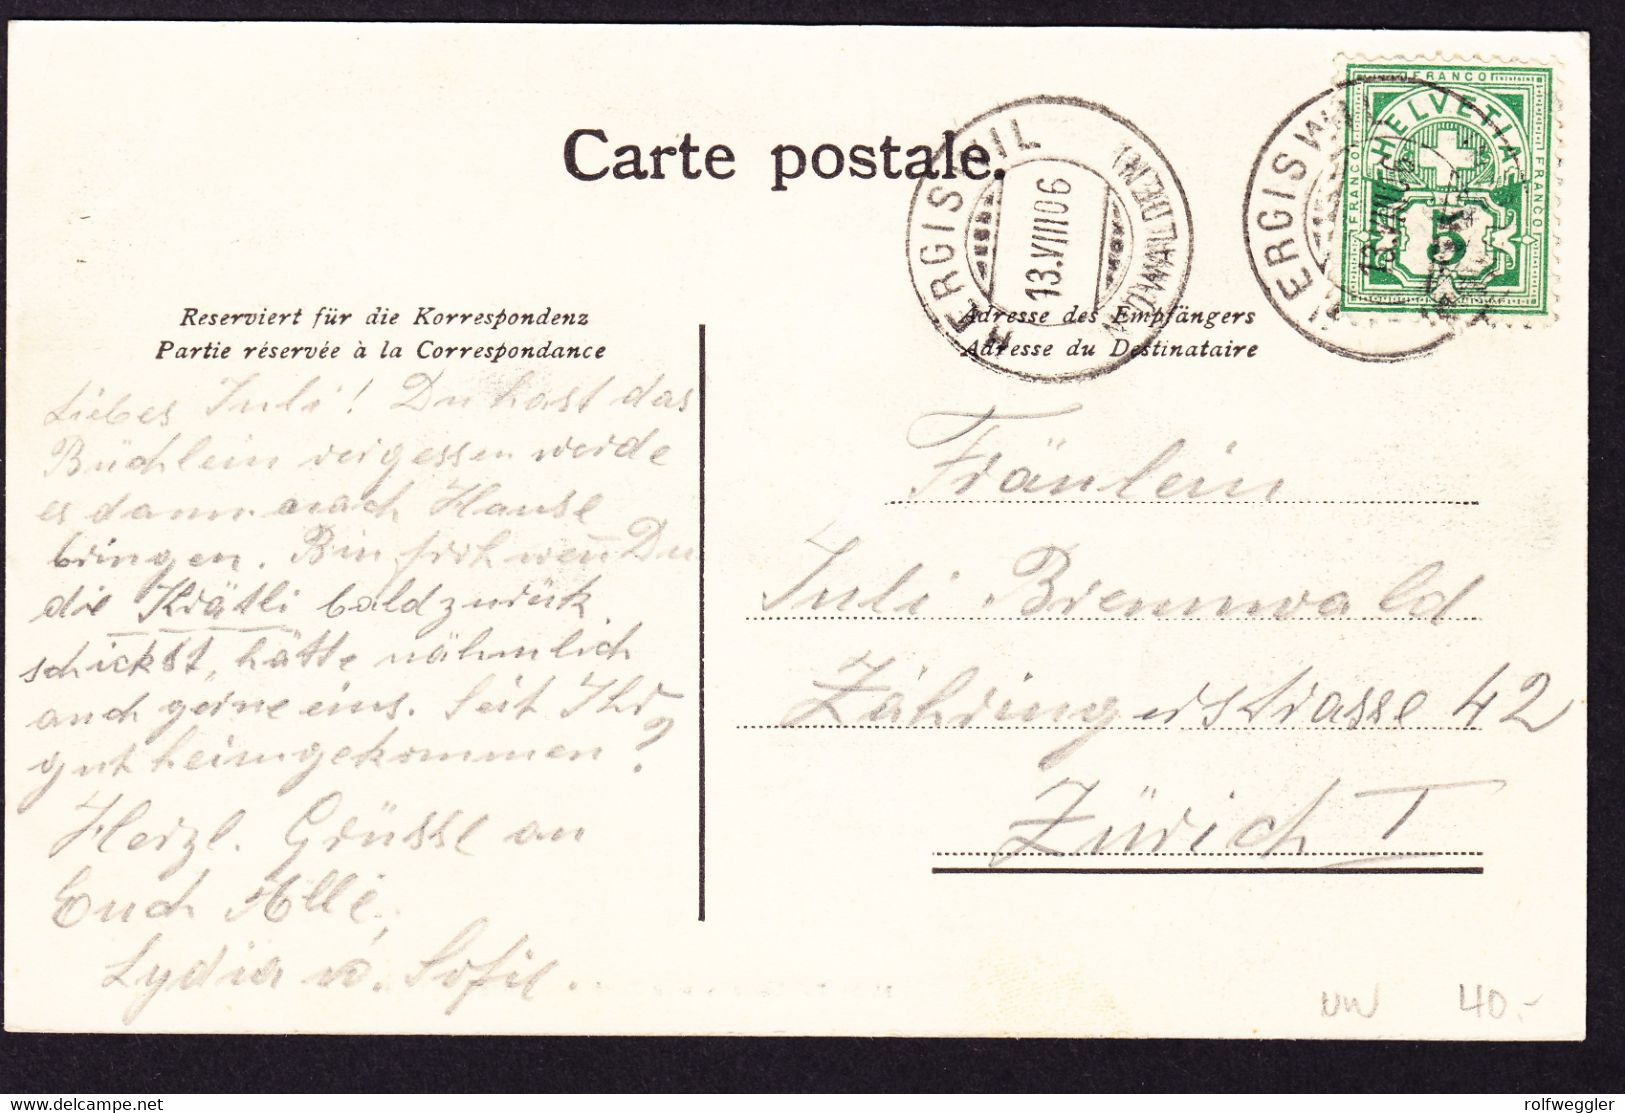 Carte postale.
HERGISWIL
13.VIII 06
(NIDWALDEN)
HERGISWIL
13.VIII
FRANCO
FRANCO
FRANCO
HELVETIA
5
Reserviert für die Korrespondenz
Partie réservée à la Correspondance
Adresse des Empfängers
Adresse du Destinataire
Liebes Juli! Du hast das
Büchlein vergessen werde
es dann nach Hause
bringen. Bin froh wen̄ Du
die Krätli bald zurück
schickst, hätte nähmlich
auch gerne eins. Seit Ihr
gut heimgekommen?
Herzl. Grüsse an
Euch Alle,
Lydia u. Sofie.
Fräulein
Juli Brennwald
Zähringerstrasse 42
Zürich I
UW 40.-
delcampe.net
rolfweggler